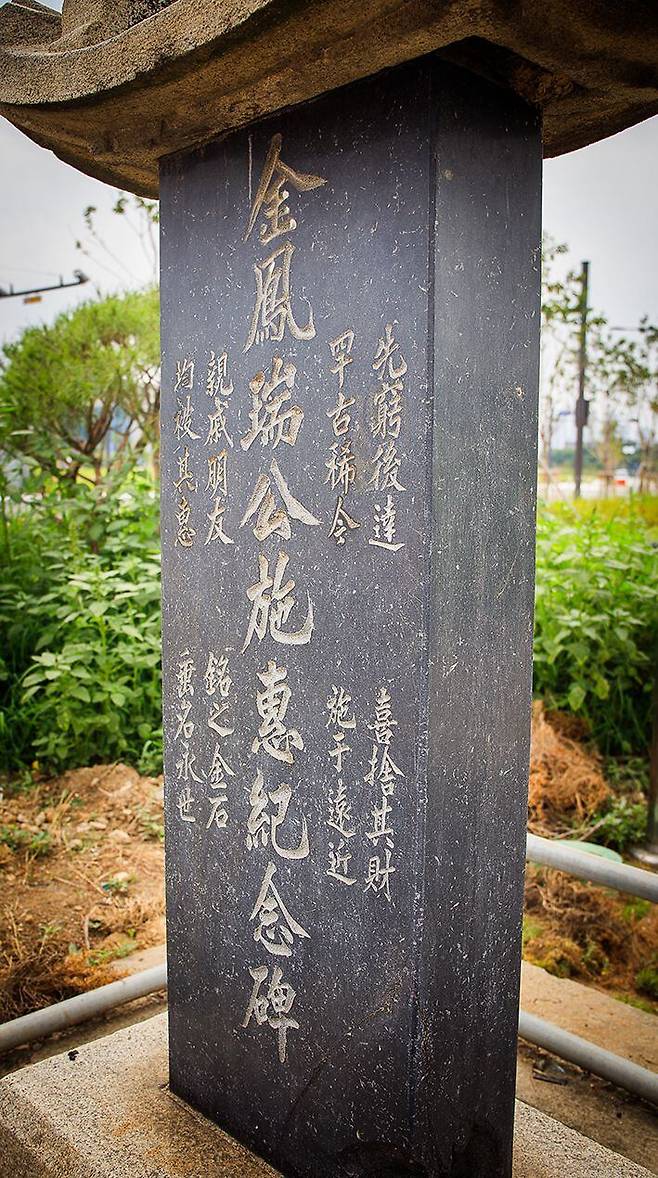 先窮後達
罕古稀今
喜捨其財
施于遠近
金鳳瑞公施惠紀念碑
親戚朋友
均被其惠
銘之金石
垂名永世